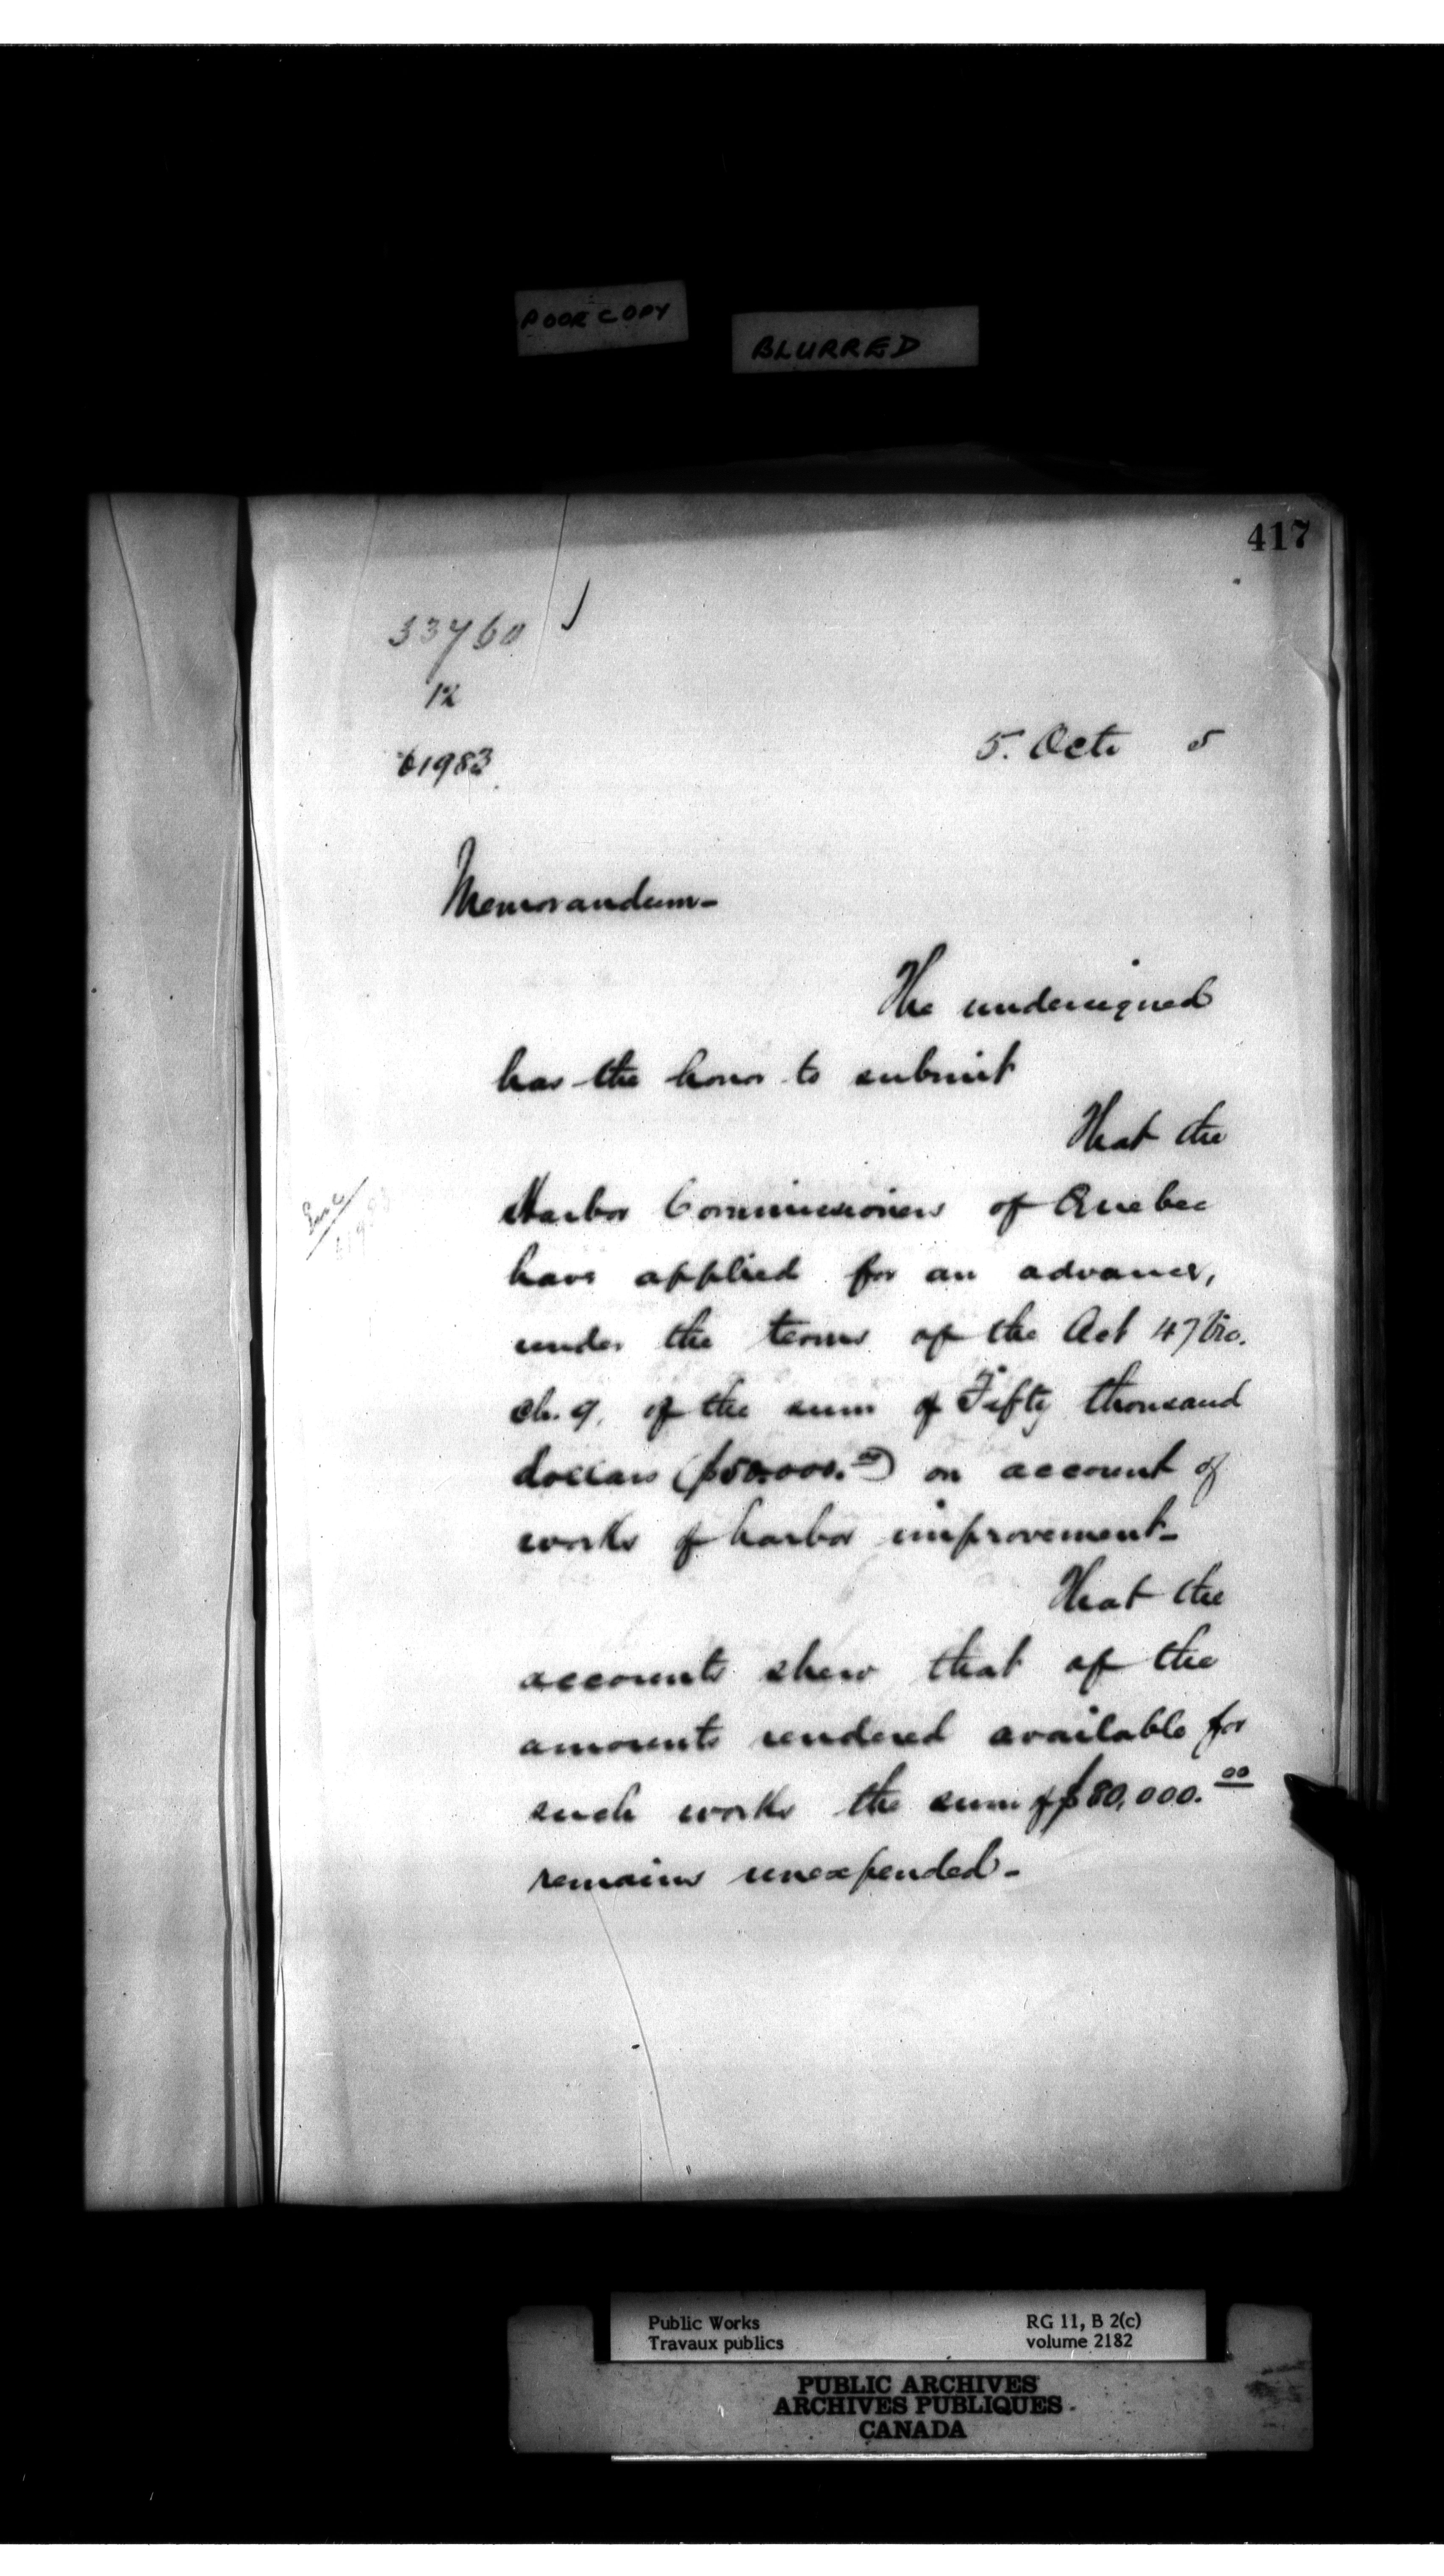 POOR COPY
BLURRED
417
33760
12
61983
5. Octr 5
Memorandum-
The undersigned
has the honor to submit
That the
Harbor Commissioners of Quebec
have applied for an advance,
under the terms of the Act 47 Vic.
ch. 9. of the sum of Fifty thousand
dollars ($50.000.00) on account of
works of harbor improvement-
That the
accounts shew that of the
amounts rendered available for
such works the sum of $80,000.00
remains unexpended-
Public Works
Travaux publics
RG 11, B 2(c)
volume 2182
PUBLIC ARCHIVES
ARCHIVES PUBLIQUES
CANADA